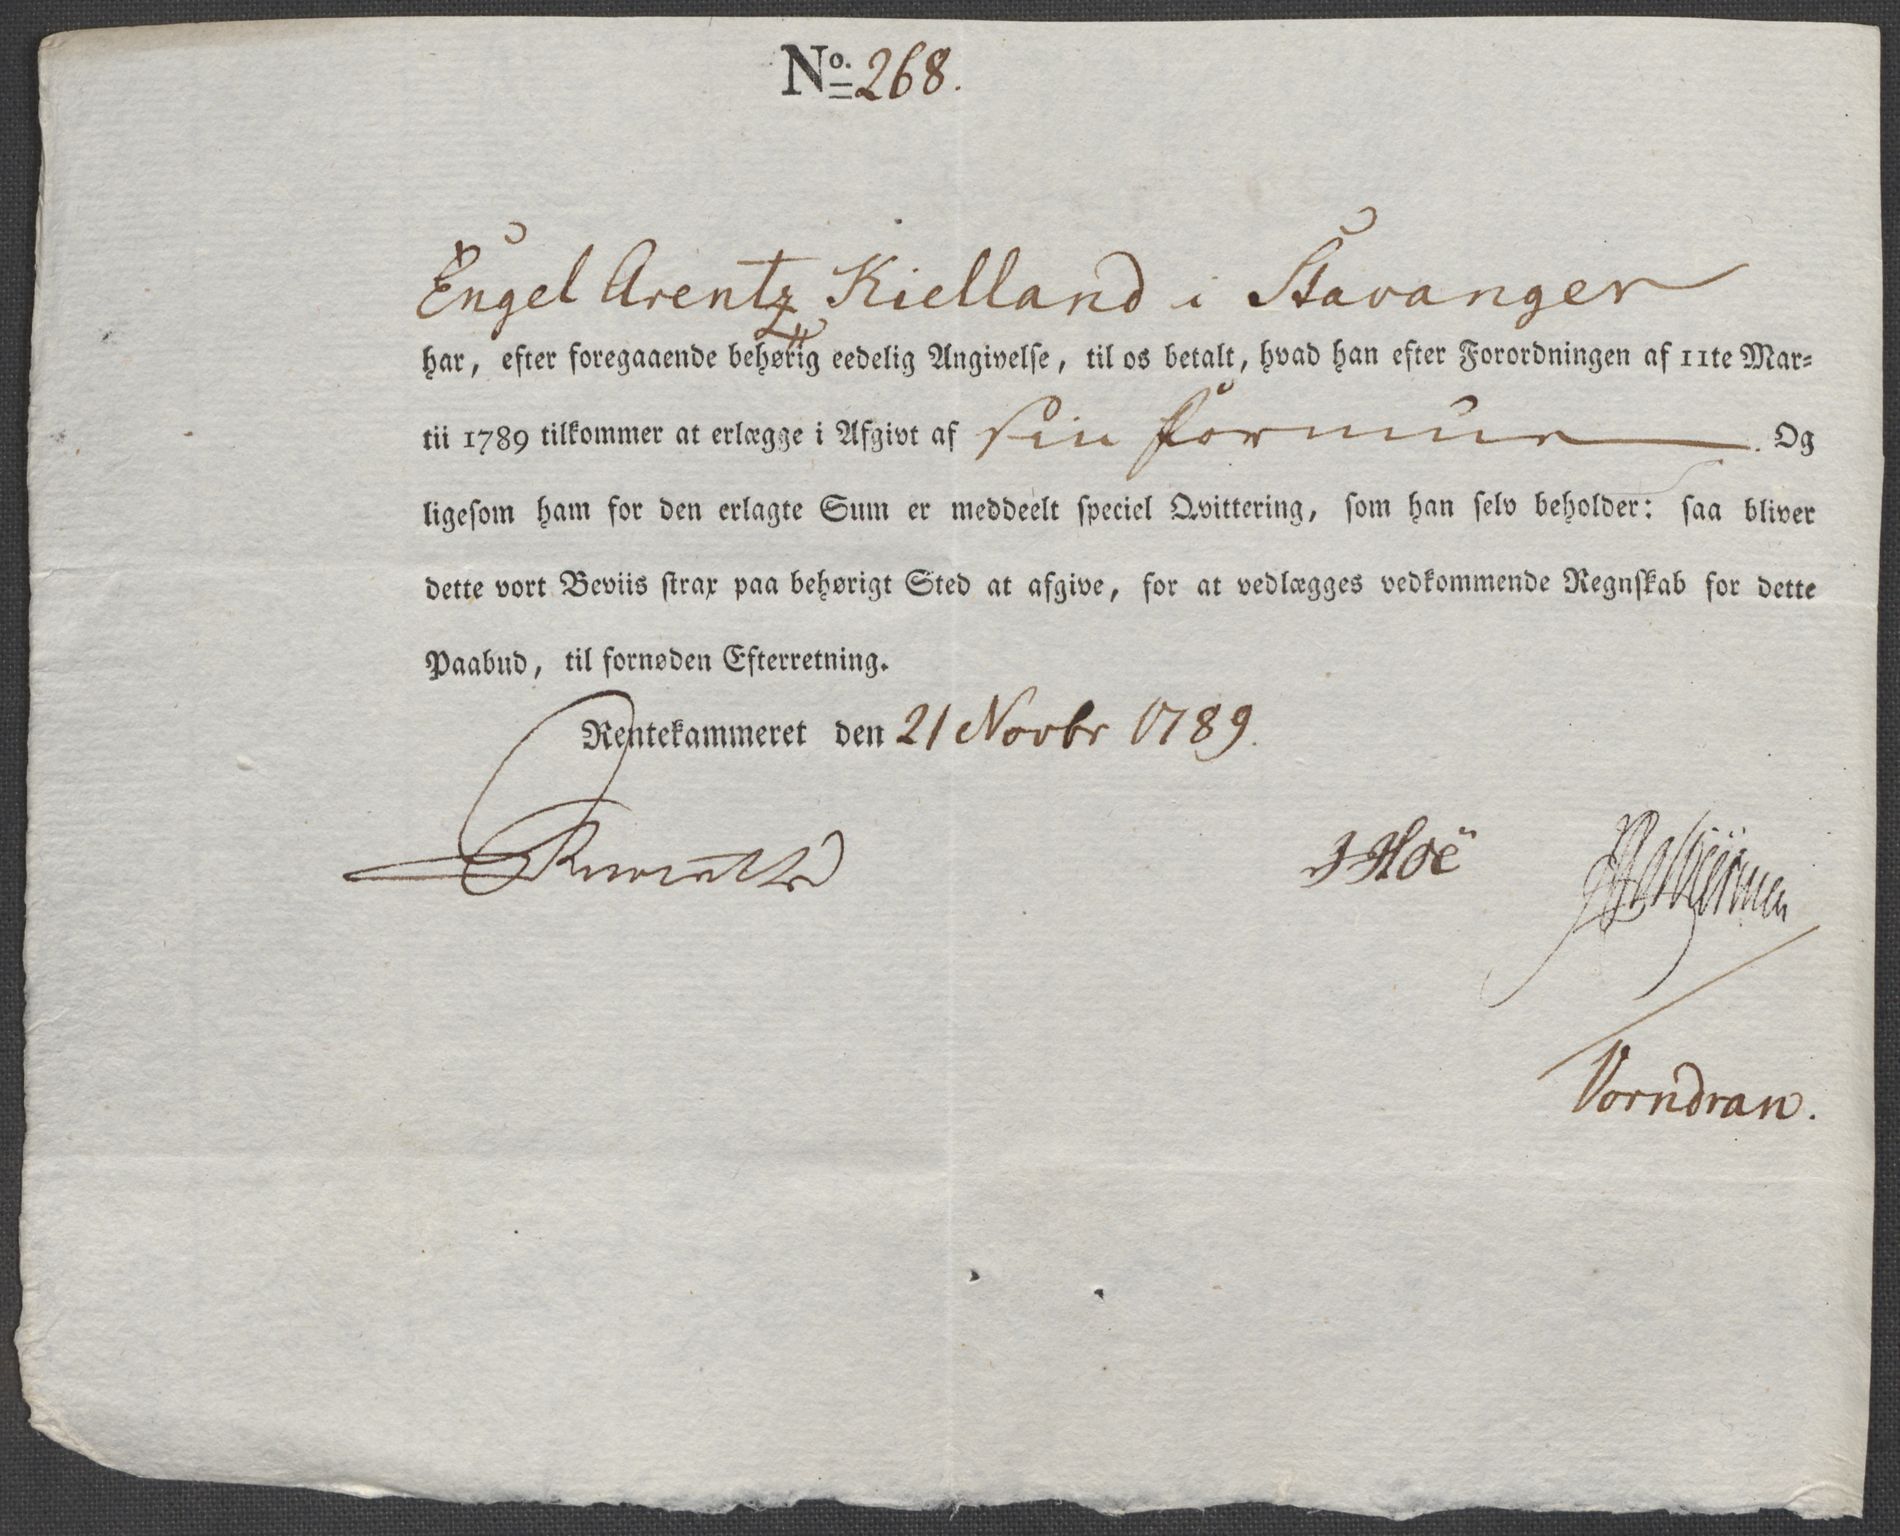 No. 268.
Engel Arentz Kielland i Stavanger
har, efter foregaaende behørig eedelig Angivelse, til os betalt, hvad han efter Forordningen af 11te Mar=
tii 1789 tilkommer at erlægge i Afgivt af sin formue. Og
ligesom ham for den erlagte Sum er meddeelt speciel Qvittering, som han selv beholder: saa bliver
dette vort Beviis strax paa behørigt Sted at afgive, for at vedlægges vedkommende Regnskab for dette
Paabud, til fornøden Efterretning.
Rentekammeret den 21 Novbr 1789.
J Hoë
Vorndran.